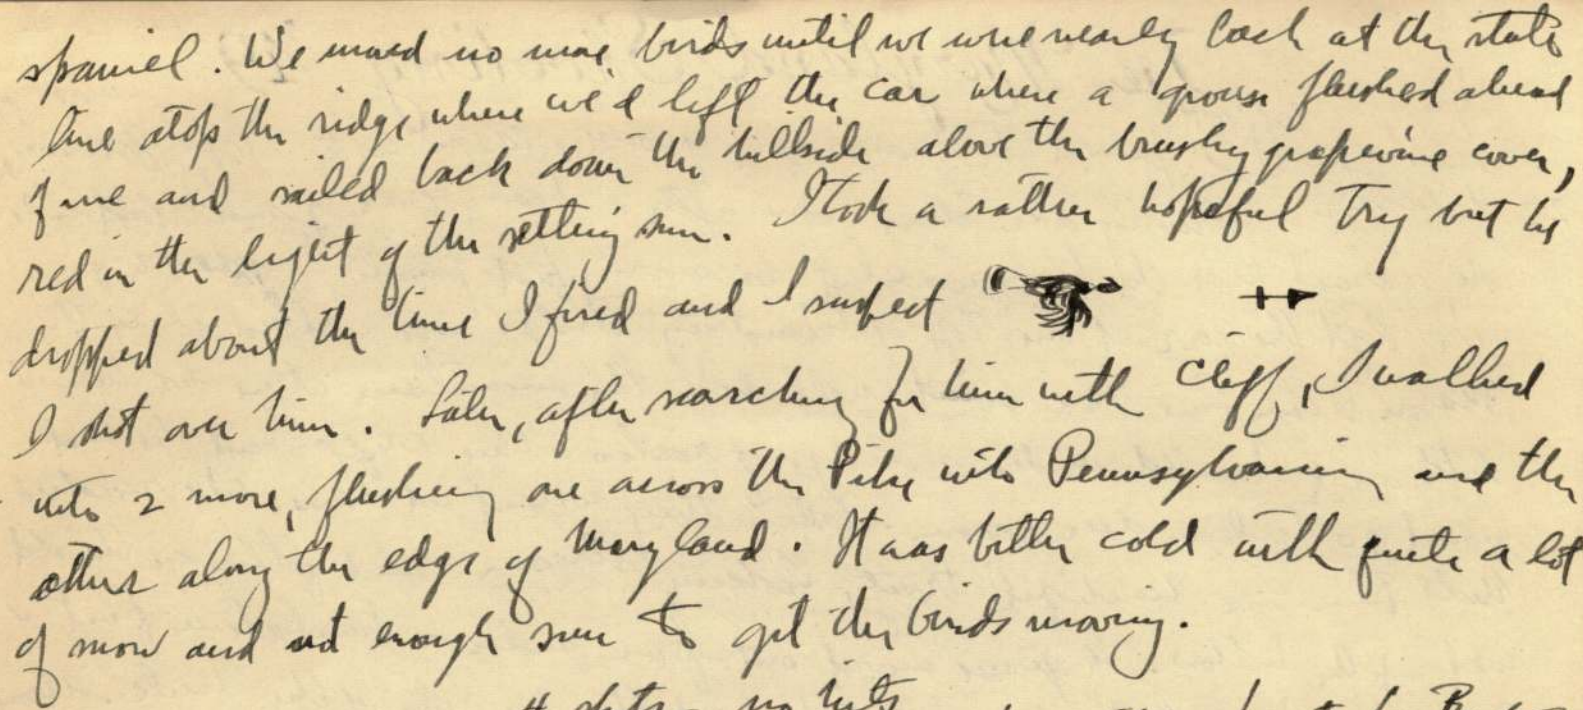 spaniel. We moved no more birds until we were nearly back at the state
line atop the ridge where we'd left the car where a grouse flushed ahead
of me and sailed back down the hillside above the brushy grapevine cover,
red in the light of the setting sun. I took a rather hopeful try but he
dropped about the time I fired and I suspect
I shot over him. Later, after searching for him with Cliff, I walked
into 2 more, flushing one across the Pike into Pennsylvania and the
other along the edge of Maryland. It was bitter cold with quite a lot
of snow and not enough sun to get the birds moving.
shots no hits